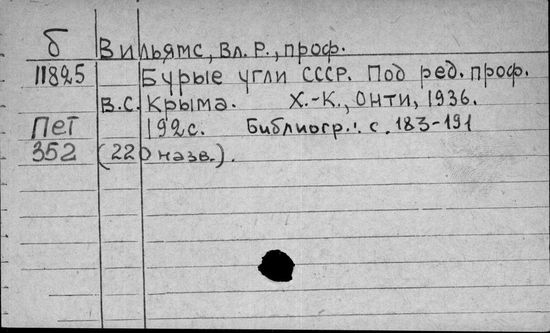 б Вильямс, Вл. Р., проф.
11825 Бурые угли СССР. Под ред. проф.
В.С. Крыма. Х.-К., Онти, 1936.
Пет 192 с. Библиогр.: с. 183-191
352 (220 назв.).